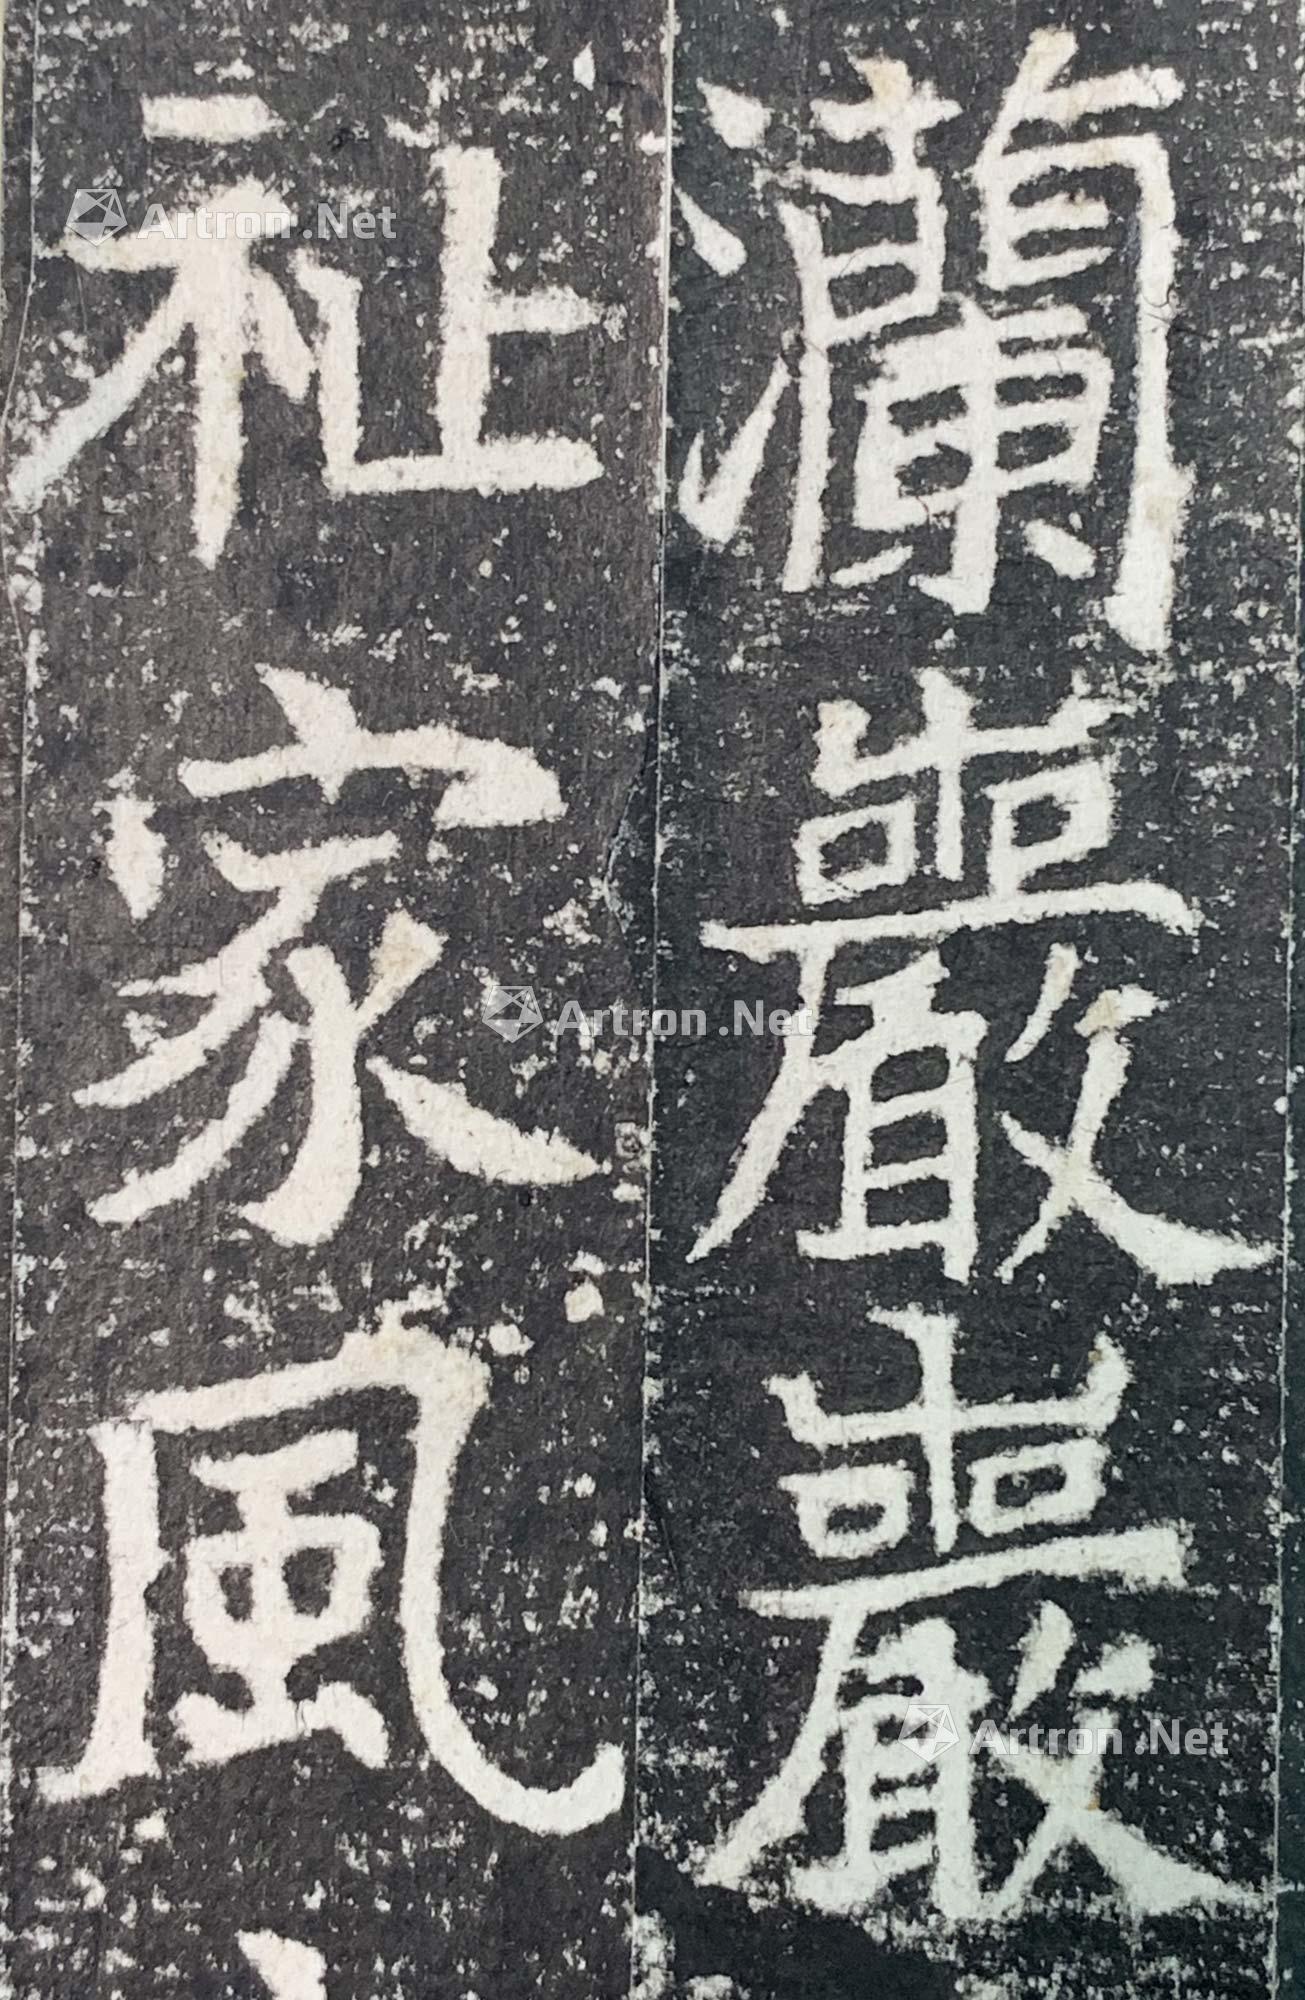 瀾嚴嚴
祉家風
Artron.Net
Artron.Net
Artron.Net